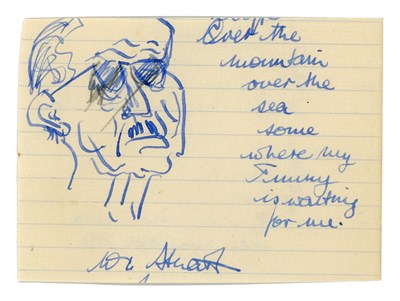 Over the
mountain
over the
sea
some
where my
Timmy
is waiting
for me.